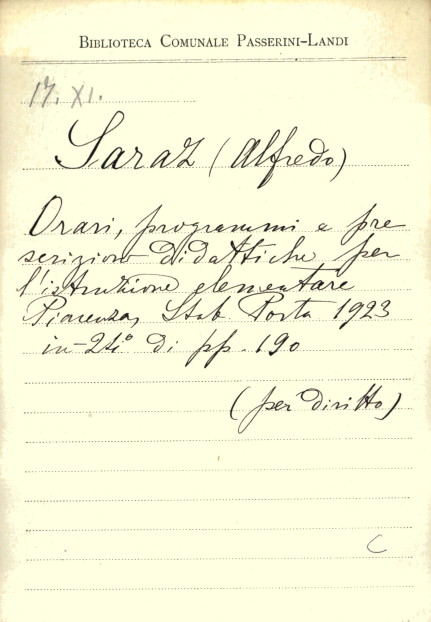 BIBLIOTECA COMUNALE PASSERINI-LANDI
17. XI.
Saraz (Alfredo)
Orari, programmi e pre
scrizioni didattiche per
l'istruzione elementare
Piacenza, Stab. Porta 1923
in-24° di pp. 190
(per diritto)
C